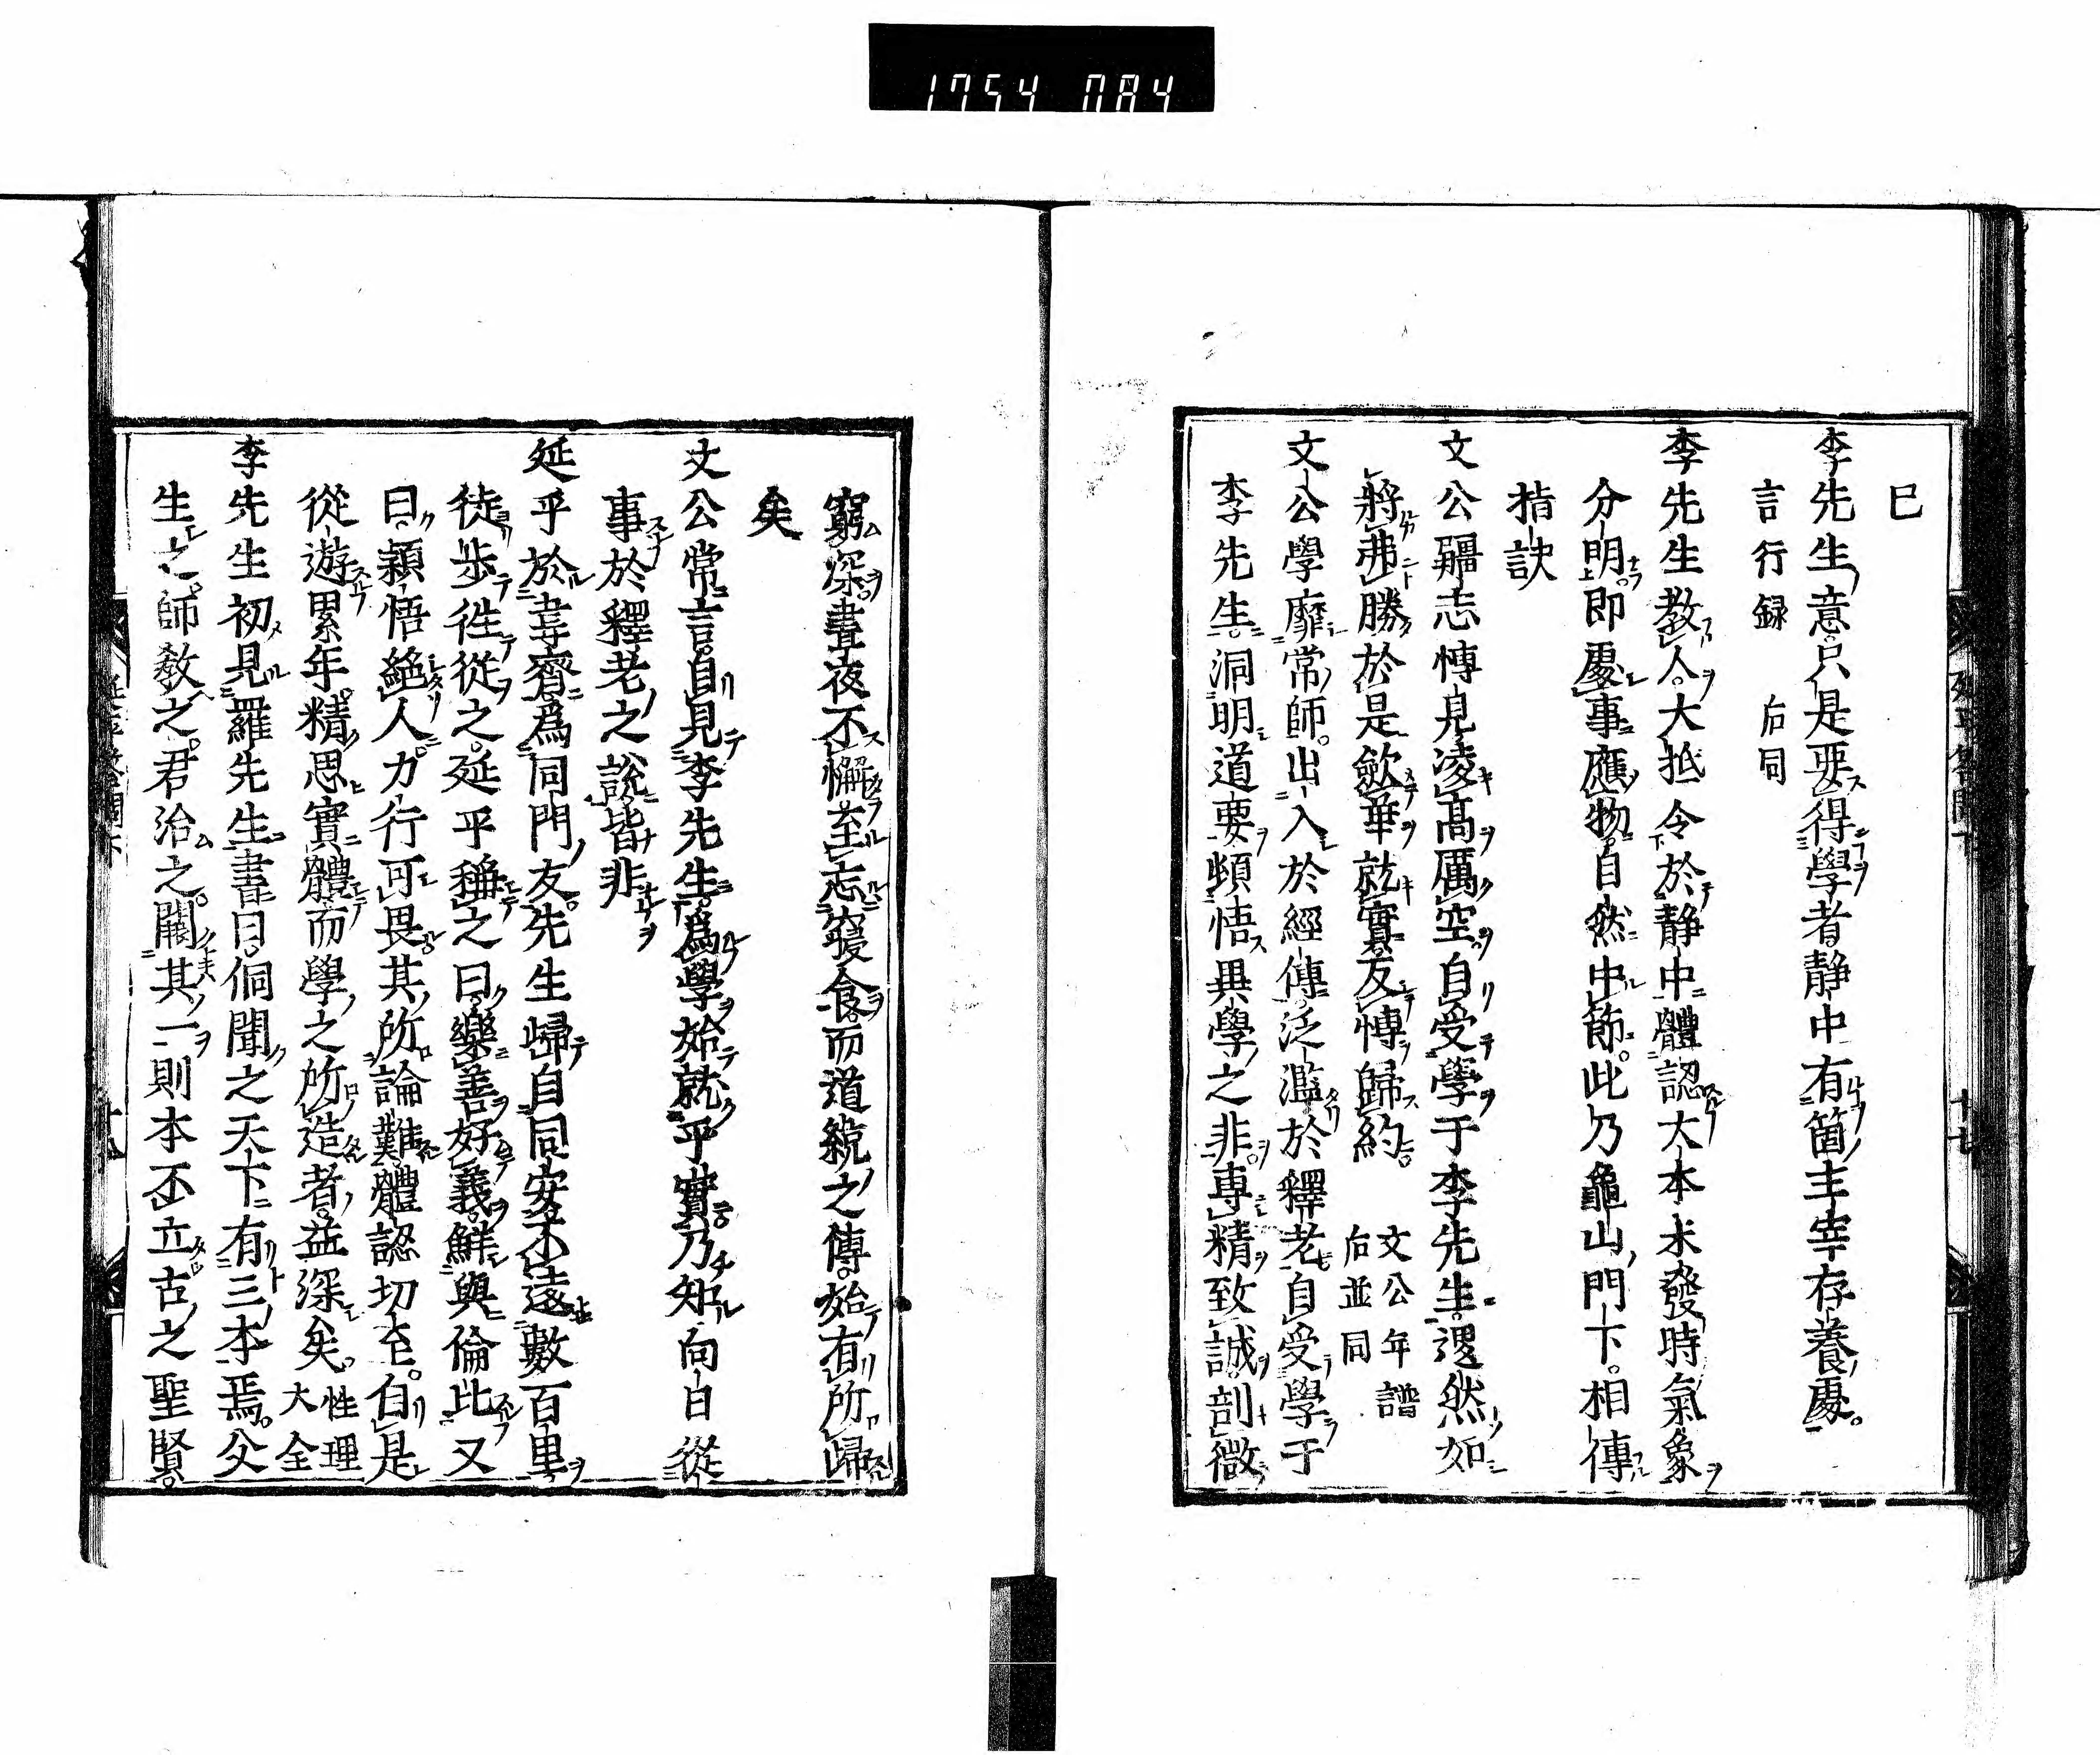 1754 084
已
李先生意只是要得學者靜中有箇主宰存養處。
言行録 后同
李先生教人。大抵令於靜中體認大本未發時氣象
分明。即處事應物。自然中節。此乃龜山門下。相傳
指訣
文公彊志博見凌高厲空。自受學于李先生。退然如
將弗勝於是歛華就實反博歸約。 文公年譜
后並同
文公學靡常師。出入於經傳。泛濫於釋老自受學于
李先生。洞明道要頓悟異學之非。專精致誠剖微
窮深。晝夜不懈至忘寢食。而道統之傳。始有所歸
矣
文公常言。自見李先生。爲學始就平實乃知向日從
事於釋老之說皆非
延平於韋齋爲同門友。先生歸自同安不遠數百里
徒歩徃從之。延平稱之曰。樂善好義。鮮與倫比又
曰。穎悟絶人。力行可畏其所論難體認切至。自是
從遊累年。精思實體而學之所造者。益深矣。 性理
大全
李先生初見羅先生書曰。侗聞之天下有三本焉。父
生之。師教之。君治之。闕其一則本不立古之聖賢。